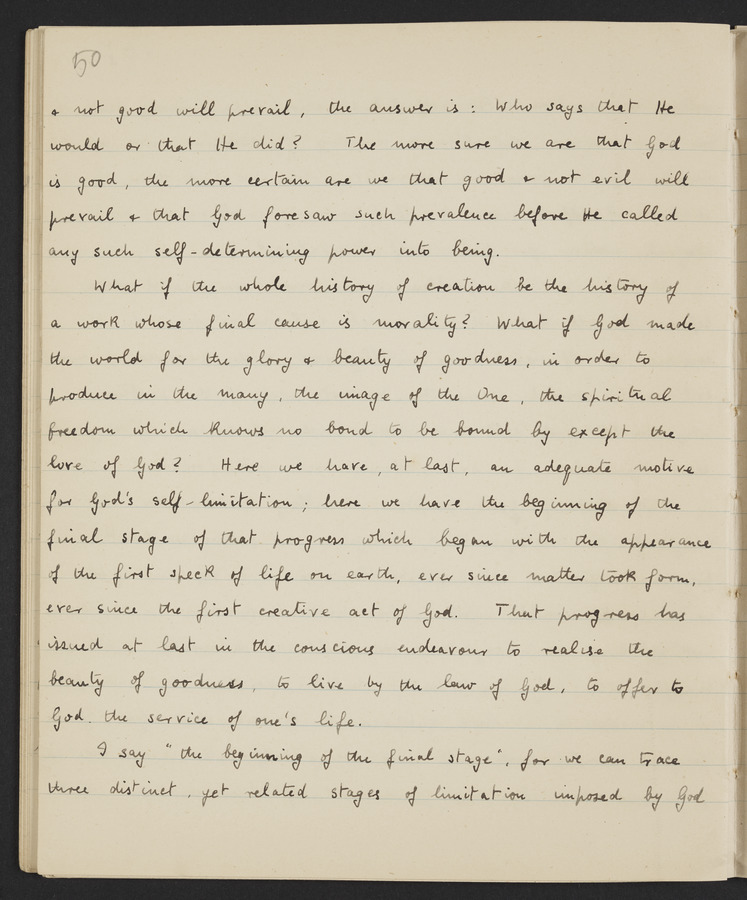 50
& not good will prevail, the answer is: Who says that He
would or that He did? The more sure we are that God
is good, the more certain are we that good & not evil will
prevail & that God foresaw such prevalence before He called
any such self-determining power into being.
What if the whole history of creation be the history of
a work whose final cause is morality? What if God made
the world for the glory & beauty of goodness, in order to
produce in the many, the image of the One, the spiritual
freedom which knows no bond to be bound by except the
love of God? Here we have, at last, an adequate motive
for God's self-limitation; here we have the beginning of the
final stage of that progress which began with the appearance
of the first speck of life on earth, ever since matter took form,
ever since the first creative act of God. That progress has
issued at last in the conscious endeavour to realise the
beauty of goodness, to live by the law of God, to offer to
God the service of one's life.
I say "the beginning of the final stage", for we can trace
three distinct, yet related stages of limitation imposed by God